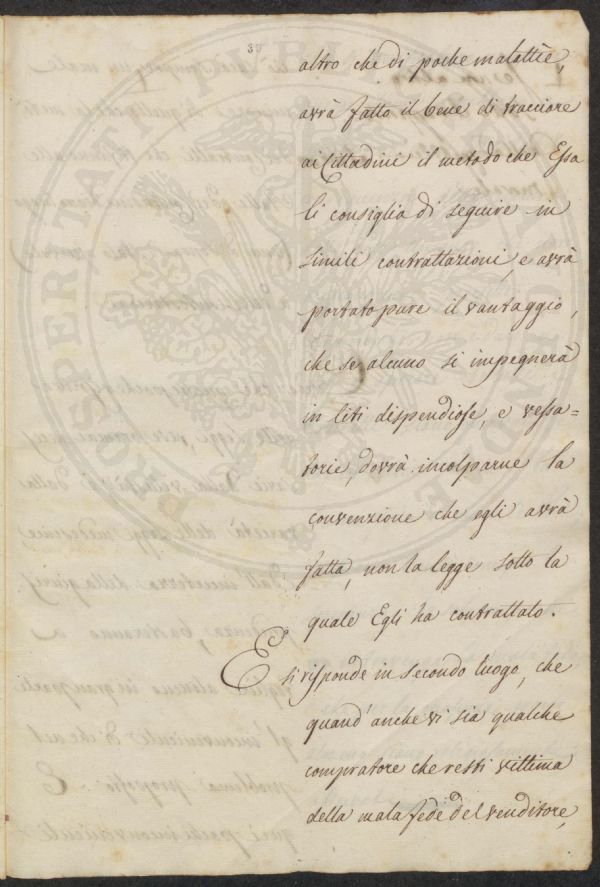 39
altro che di poche malattie,
avrà fatto il bene di tracciare
ai Cittadini il metodo che Essa
li consiglia di seguire in
simili contrattazioni, e avrà
portato pure il vantaggio,
che se alcuno si impegnerà
in liti dispendiose, e vessa-
torie, dovrà incolparne la
convenzione che egli avrà
fatta, non la legge sotto la
quale Egli ha contrattato.
E si risponde in secondo luogo, che
quand'anche vi sia qualche
compratore che resti vittima
della mala fede del venditore,